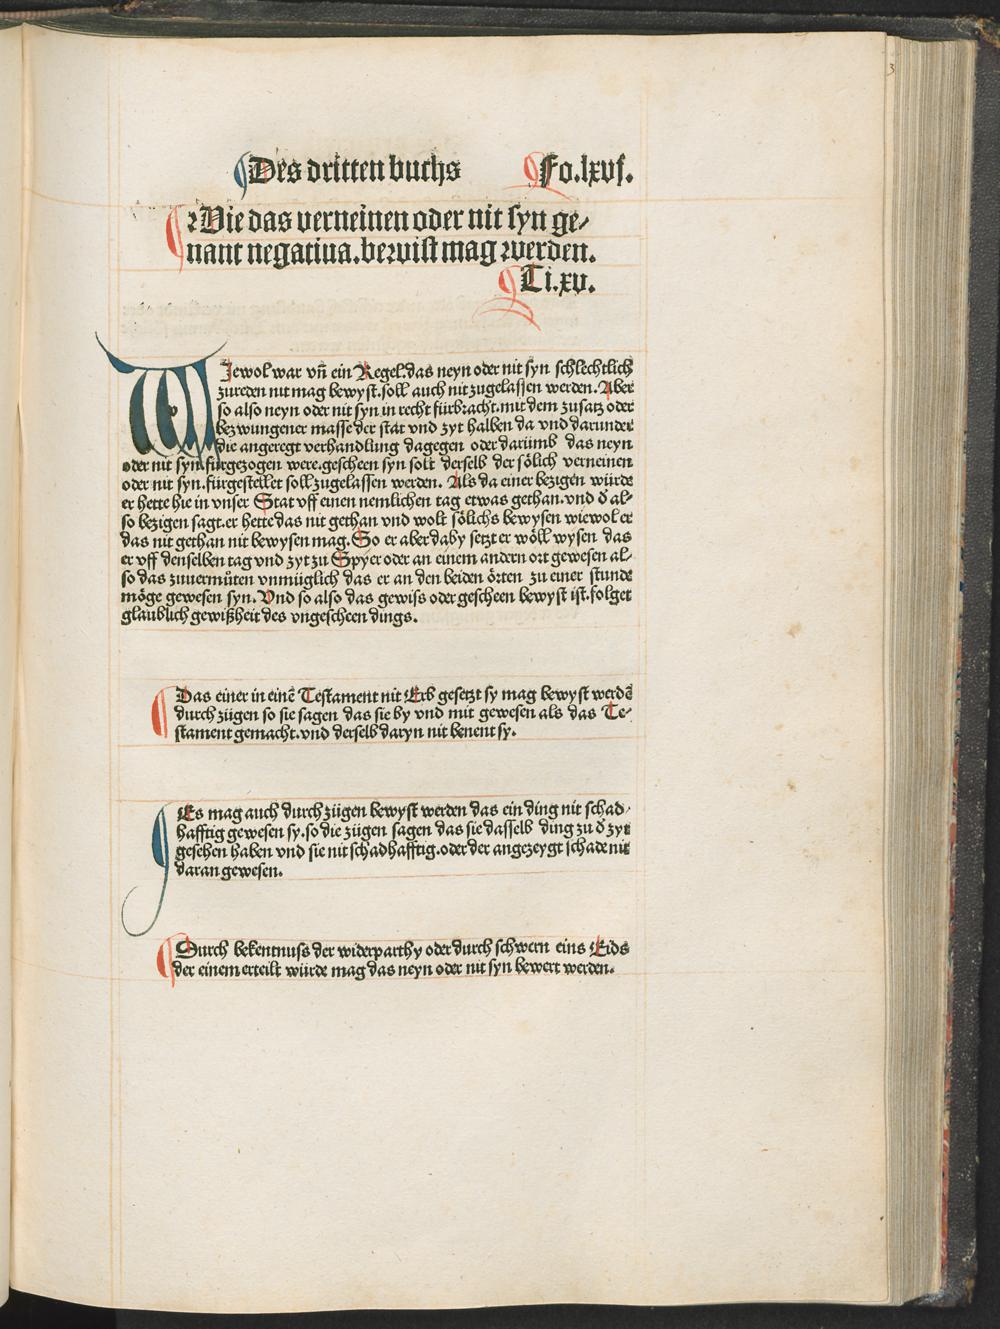 Des dritten buchs Fo.lxvj.
Wie das verneinen oder nit syn ge⸗
nant negatiua.bewist mag werden.
Ti.xv.
WJewol war vn̄ ein Regel.das neyn oder nit syn schlechtlich
zureden nit mag bewyst.soll auch nit zugelassen werden. Aber
so also neyn oder nit syn in recht fürbracht.mit dem zusatz oder
bezwungener masse der stat vnd zyt halben da vnd darunder
die angeregt verhandlung dagegen oder darumb das neyn
oder nit syn.fürgezogen were.gescheen syn solt derselb der sölich verneinen
oder nit syn.fürgestellet soll zugelassen werden. Als da einer bezigen würde
er hette hie in vnser Stat vff einen nemlichen tag etwas gethan.vnd d̄ al⸗
so bezigen sagt.er hette das nit gethan vnd wolt sölichs bewysen wiewol er
das nit gethan nit bewysen mag. So er aber daby setzt er wöll wysen das
er vff denselben tag vnd zyt zu Spyer oder an einem andern ort gewesen al⸗
so das zuuermůten vnmüglich das er an den beiden örten zu einer stunde
möge gewesen syn. Vnd so also das gewiss oder gescheen bewyst ist.folget
glaublich gewißheit des vngescheen dings.
Das einer in einē Testament nit Erb gesetzt sy mag bewyst werdē
durch zügen so sie sagen das sie by vnd mit gewesen als das Te⸗
stament gemacht.vnd derselb daryn nit benent sy.
Es mag auch durch zügen bewyst werden das ein ding nit schad⸗
hafftig gewesen sy.so die zügen sagen das sie dasselb ding zu d̄ zyt
gesehen haben vnd sie nit schadhafftig.oder der angezeygt schade nit
daran gewesen.
Durch bekentnuss der widerparthy oder durch schwern eins Eids
der einem erteilt würde mag das neyn oder nit syn bewert werden.